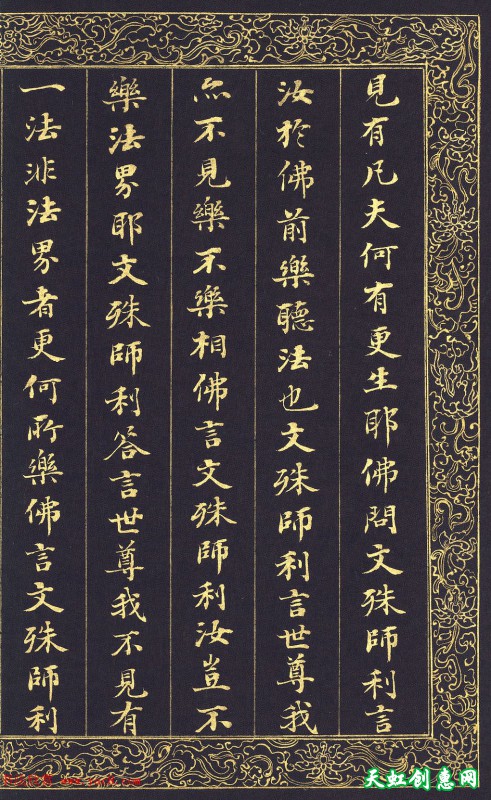 見有凡夫何有更生耶佛問文殊師利言
汝於佛前樂聽法也文殊師利言世尊我
亦不見樂不樂相佛言文殊師利汝豈不
樂法界耶文殊師利答言世尊我不見有
一法非法界者更何所樂佛言文殊師利
天虹创惠网